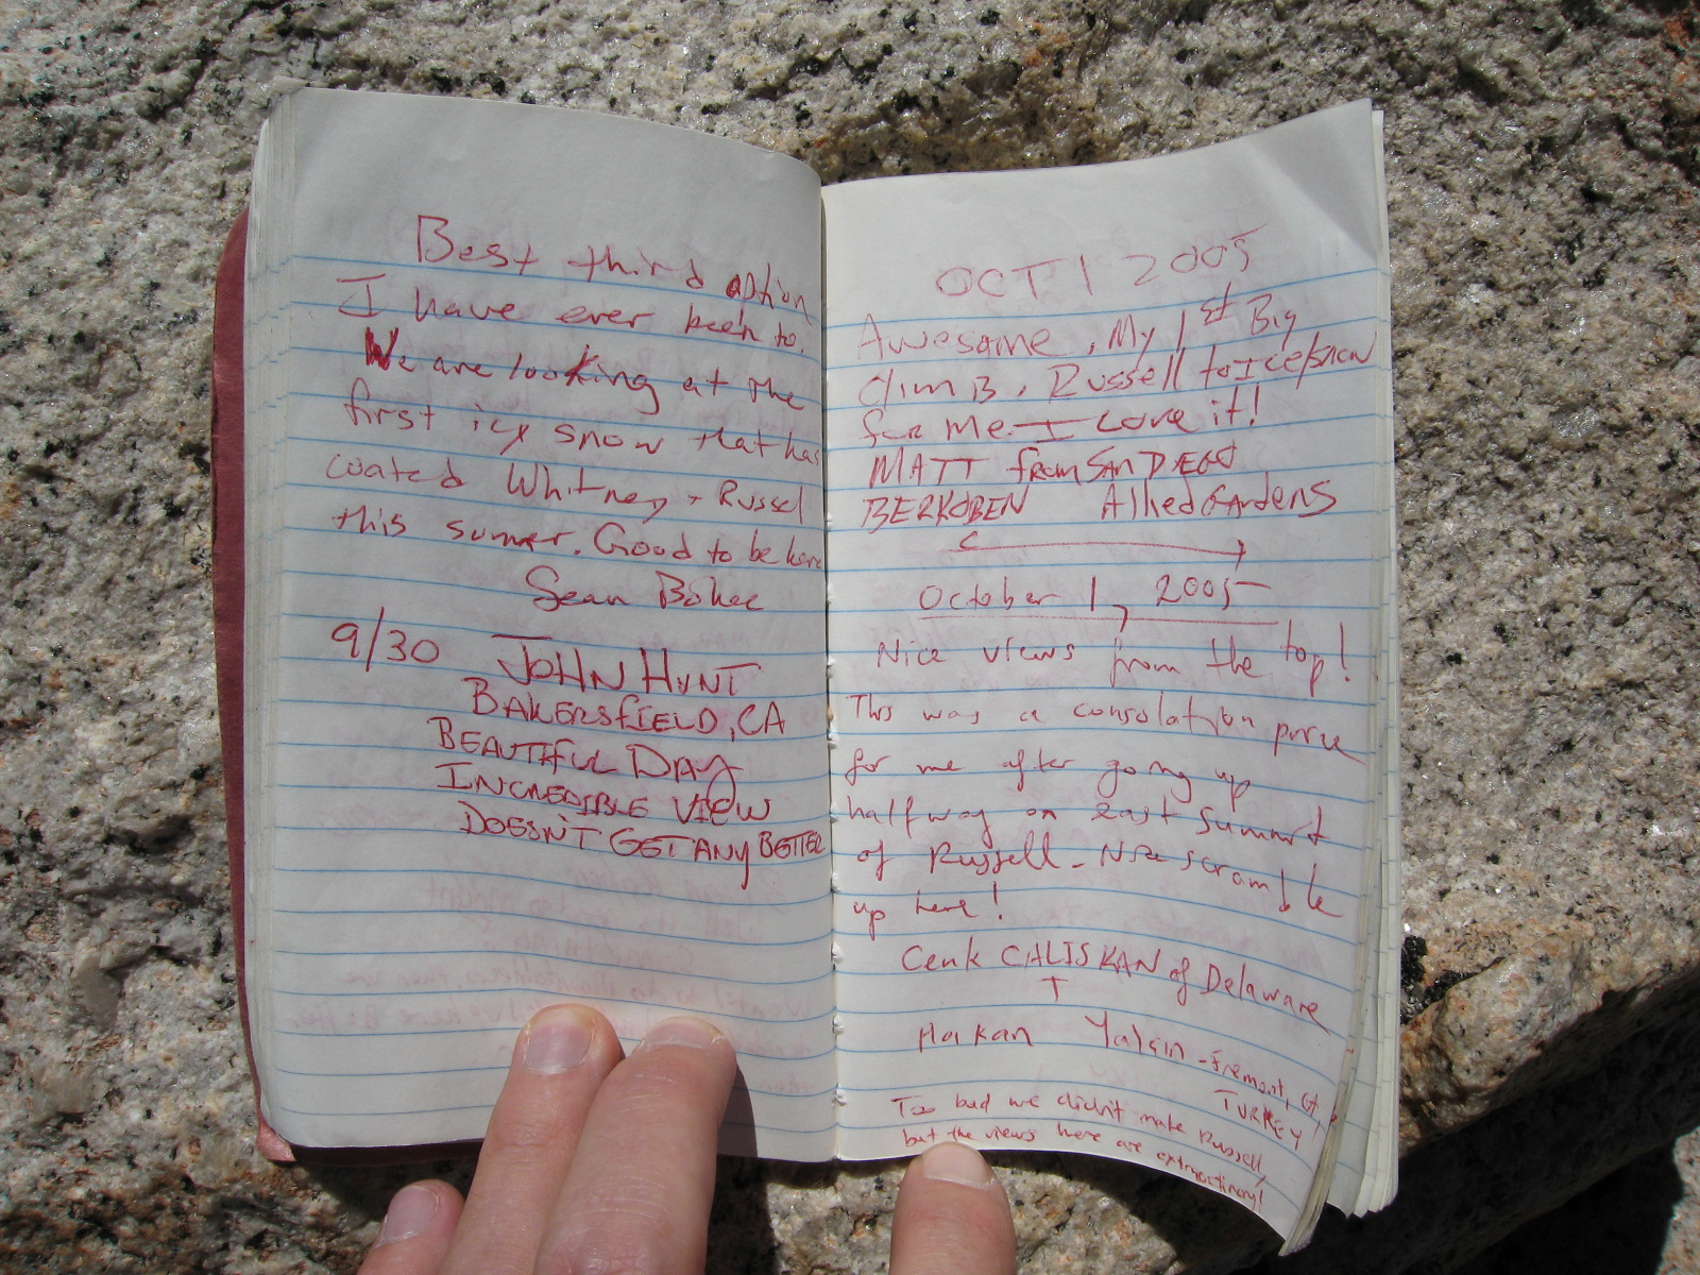 Best third option
I have ever been to.
We are looking at the
first icy snow that has
coated Whitney + Russel
this summer. Good to be here
Sean
9/30 JOHN HUNT
BAKERSFIELD, CA
BEAUTIFUL DAY
INCREDIBLE VIEW
DOESN'T GET ANY BETTER
OCT 1 2005
Awesome, My 1st Big
climB, Russell to Ice/snow
for me. I Love it!
MATT from SAN DIEGO
BERKOBEN Allied GArdens
October 1, 2005
Nice views from the top!
This was a consolation prize
for me after going up
halfway on east summit
of Russell - Nice scramble
up here!
Cenk CALISKAN of Delaware
Hakan Yalcin - Fremont, CA
TURKEY
Too bad we didn't make Russell,
but the views here are extraordinary!